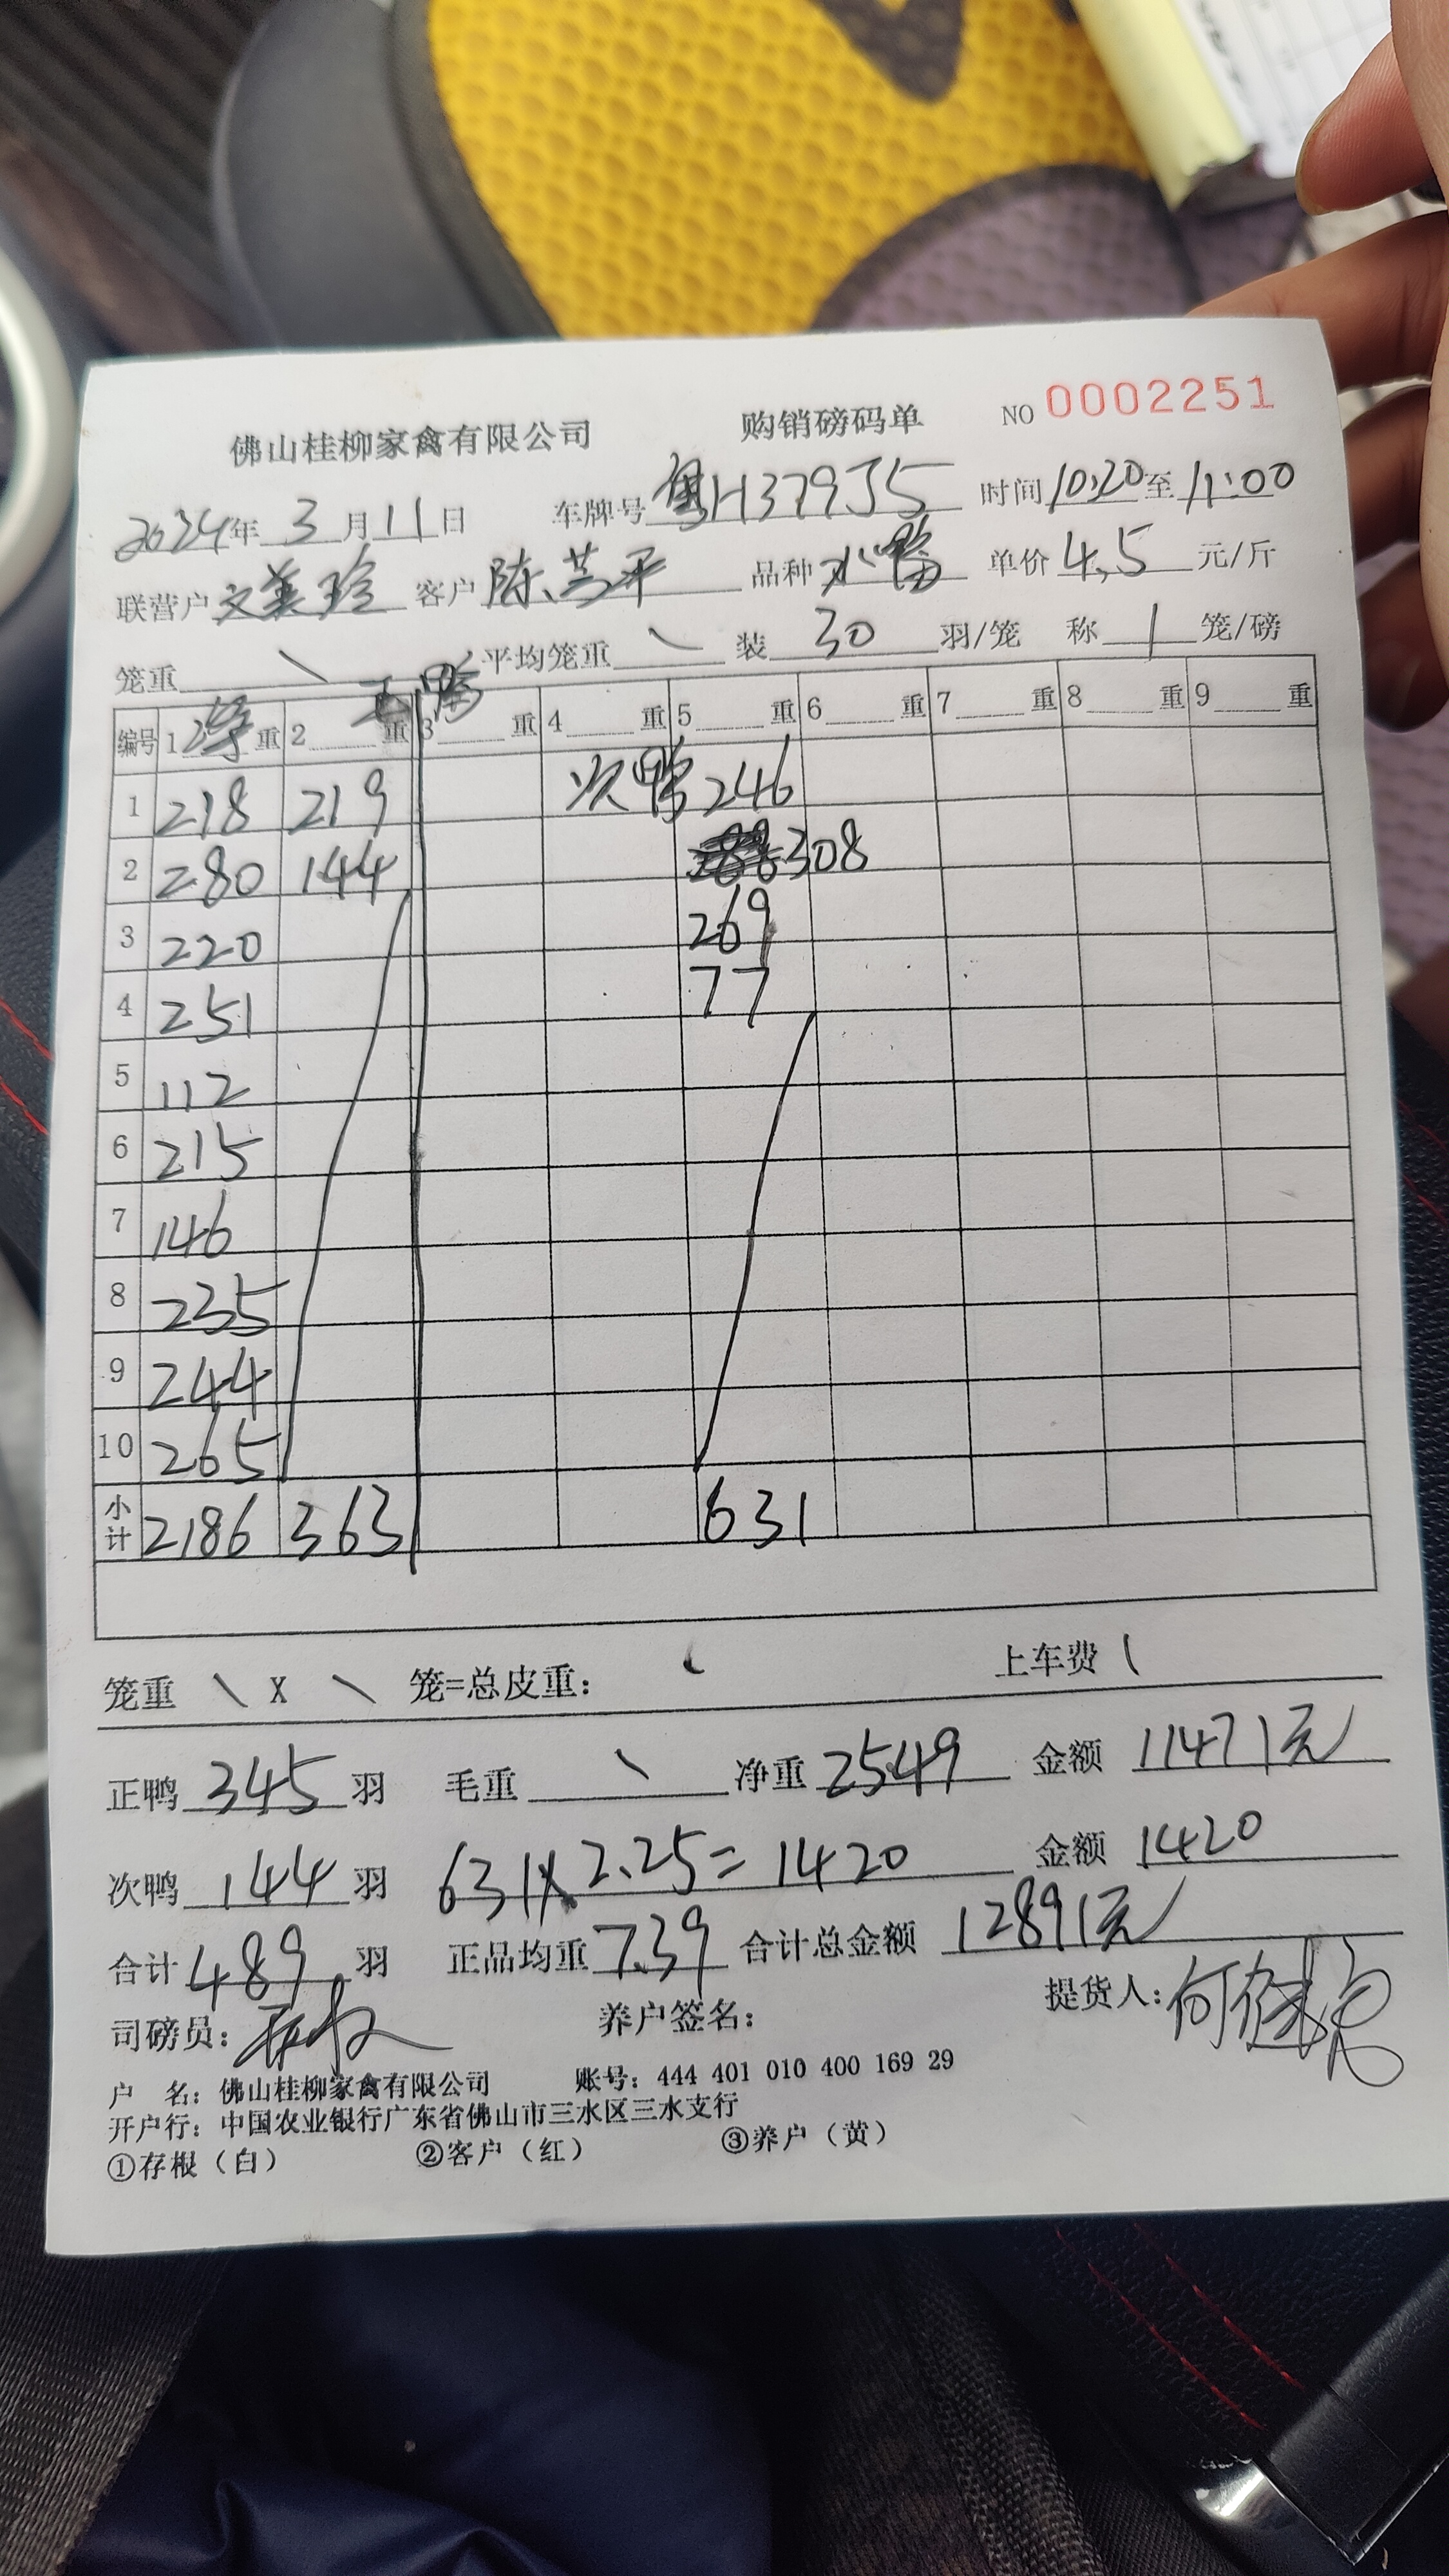 佛山桂柳家禽有限公司 购销磅码单 NO 0002251
2024年 3 月 11 日 车牌号 粤H379J5 时间 10:20 至 11:00
联营户 文美珍 客户 陈兰平 品种 水鸭 单价 4.5 元/斤
笼重 \ 平均笼重 \ 装 30 羽/笼 称 1 笼/磅
编号 1 净 重 2 重 3 重 4 重 5 重 6 重 7 重 8 重 9 重
正鸭
1 218 219 次鸭 246
2 280 144 308
3 220 269
4 251 77
5 112
6 215
7 146
8 235
9 244
10 265
小计 2186 363 631
笼重 \ X \ 笼=总皮重: 上车费
正鸭 345 羽 毛重 \ 净重 2549 金额 11471元
次鸭 144 羽 631X2.25=1420 金额 1420
合计 489 羽 正品均重 7.39 合计总金额 12891元
司磅员: 养户签名: 提货人:
户 名: 佛山桂柳家禽有限公司 账号: 444 401 010 400 169 29
开户行: 中国农业银行广东省佛山市三水区三水支行
①存根（白） ②客户（红） ③养户（黄）